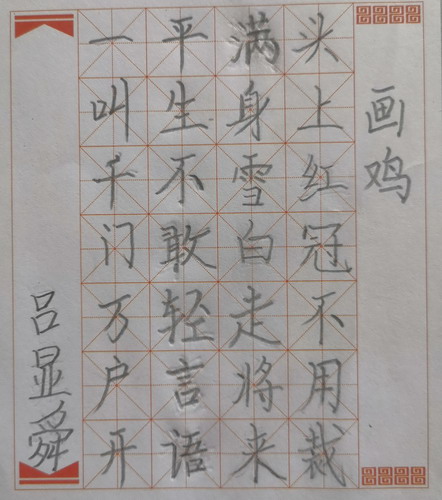 画鸡
头上红冠不用裁
满身雪白走将来
平生不敢轻言语
一叫千门万户开
吕显舜